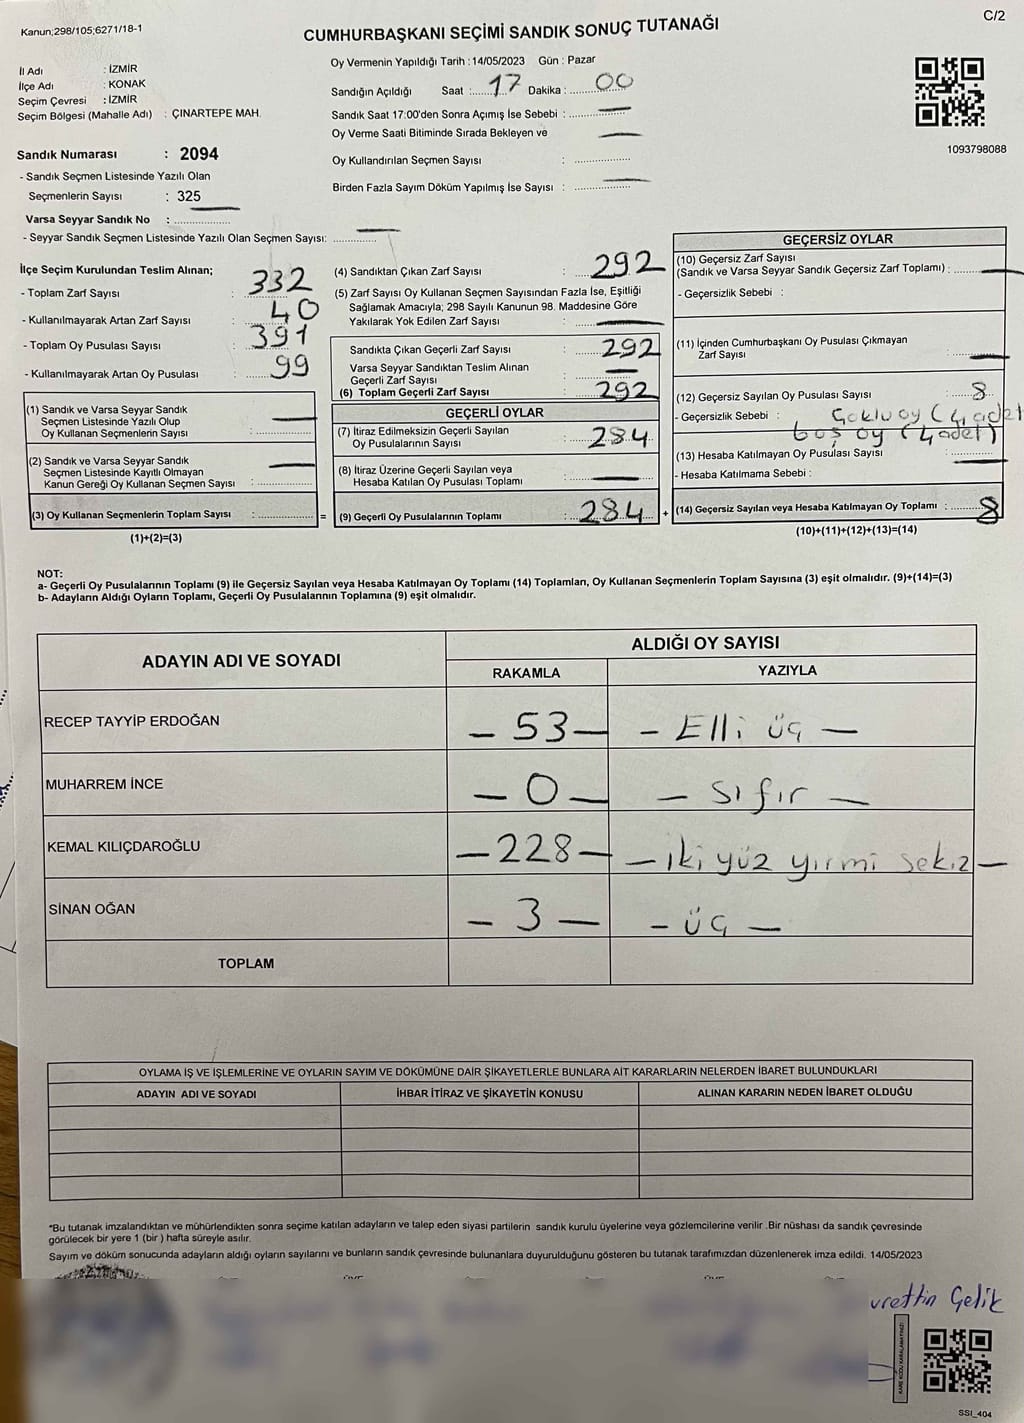 Kanun;298/105;6271/18-1
C/2
CUMHURBAŞKANI SEÇİMİ SANDIK SONUÇ TUTANAĞI
İl Adı : İZMİR
İlçe Adı : KONAK
Seçim Çevresi : İZMİR
Seçim Bölgesi (Mahalle Adı) : ÇINARTEPE MAH.
Sandık Numarası : 2094
- Sandık Seçmen Listesinde Yazılı Olan
Seçmenlerin Sayısı : 325
Varsa Seyyar Sandık No : —
- Seyyar Sandık Seçmen Listesinde Yazılı Olan Seçmen Sayısı: —
Oy Vermenin Yapıldığı Tarih : 14/05/2023 Gün : Pazar
Sandığın Açıldığı Saat : 17 Dakika : 00
Sandık Saat 17:00'den Sonra Açımış İse Sebebi : —
Oy Verme Saati Bitiminde Sırada Bekleyen ve —
Oy Kullandırılan Seçmen Sayısı :
Birden Fazla Sayım Döküm Yapılmış İse Sayısı : —
1093798088
İlçe Seçim Kurulundan Teslim Alınan;
- Toplam Zarf Sayısı : 332
- Kullanılmayarak Artan Zarf Sayısı : 40
- Toplam Oy Pusulası Sayısı : 391
- Kullanılmayarak Artan Oy Pusulası : 99
(1) Sandık ve Varsa Seyyar Sandık
Seçmen Listesinde Yazılı Olup
Oy Kullanan Seçmenlerin Sayısı : —
(2) Sandık ve Varsa Seyyar Sandık
Seçmen Listesinde Kayıtlı Olmayan
Kanun Gereği Oy Kullanan Seçmen Sayısı : —
(3) Oy Kullanan Seçmenlerin Toplam Sayısı : =
(1)+(2)=(3)
(4) Sandıktan Çıkan Zarf Sayısı : 292
(5) Zarf Sayısı Oy Kullanan Seçmen Sayısından Fazla İse, Eşitliği
Sağlamak Amacıyla; 298 Sayılı Kanunun 98. Maddesine Göre
Yakılarak Yok Edilen Zarf Sayısı : —
Sandıkta Çıkan Geçerli Zarf Sayısı : 292
Varsa Seyyar Sandıktan Teslim Alınan
Geçerli Zarf Sayısı : —
(6) Toplam Geçerli Zarf Sayısı : 292
GEÇERLİ OYLAR
(7) İtiraz Edilmeksizin Geçerli Sayılan
Oy Pusulalarının Sayısı : 284
(8) İtiraz Üzerine Geçerli Sayılan veya
Hesaba Katılan Oy Pusulası Toplamı : —
(9) Geçerli Oy Pusulalarının Toplamı : 284 +
GEÇERSİZ OYLAR
(10) Geçersiz Zarf Sayısı
(Sandık ve Varsa Seyyar Sandık Geçersiz Zarf Toplamı) : —
- Geçersizlik Sebebi :
(11) İçinden Cumhurbaşkanı Oy Pusulası Çıkmayan
Zarf Sayısı : —
(12) Geçersiz Sayılan Oy Pusulası Sayısı : 8
- Geçersizlik Sebebi : Çoklu oy (4 adet
boş oy (4 adet)
(13) Hesaba Katılmayan Oy Pusulası Sayısı : —
- Hesaba Katılmama Sebebi :
(14) Geçersiz Sayılan veya Hesaba Katılmayan Oy Toplamı : 8
(10)+(11)+(12)+(13)=(14)
NOT:
a- Geçerli Oy Pusulalarının Toplamı (9) ile Geçersiz Sayılan veya Hesaba Katılmayan Oy Toplamı (14) Toplamları, Oy Kullanan Seçmenlerin Toplam Sayısına (3) eşit olmalıdır. (9)+(14)=(3)
b- Adayların Aldığı Oyların Toplamı, Geçerli Oy Pusulalarının Toplamına (9) eşit olmalıdır.
ADAYIN ADI VE SOYADI ALDIĞI OY SAYISI
RAKAMLA YAZIYLA
RECEP TAYYİP ERDOĞAN — 53 — — Elli üç —
MUHARREM İNCE — 0 — — Sıfır —
KEMAL KILIÇDAROĞLU — 228 — — iki yüz yirmi sekiz —
SİNAN OĞAN — 3 — — üç —
TOPLAM
OYLAMA İŞ VE İŞLEMLERİNE VE OYLARIN SAYIM VE DÖKÜMÜNE DAİR ŞİKAYETLERLE BUNLARA AİT KARARLARIN NELERDEN İBARET BULUNDUKLARI
ADAYIN ADI VE SOYADI İHBAR İTİRAZ VE ŞİKAYETİN KONUSU ALINAN KARARIN NEDEN İBARET OLDUĞU
*Bu tutanak imzalandıktan ve mühürlendikten sonra seçime katılan adayların ve talep eden siyasi partilerin sandık kurulu üyelerine veya gözlemcilerine verilir .Bir nüshası da sandık çevresinde
görülecek bir yere 1 (bir ) hafta süreyle asılır.
Sayım ve döküm sonucunda adayların aldığı oyların sayılarını ve bunların sandık çevresinde bulunanlara duyurulduğunu gösteren bu tutanak tarafımızdan düzenlenerek imza edildi. 14/05/2023
urettin Çelik
KARE KODU KARALAMAYINIZ!
SSI_404